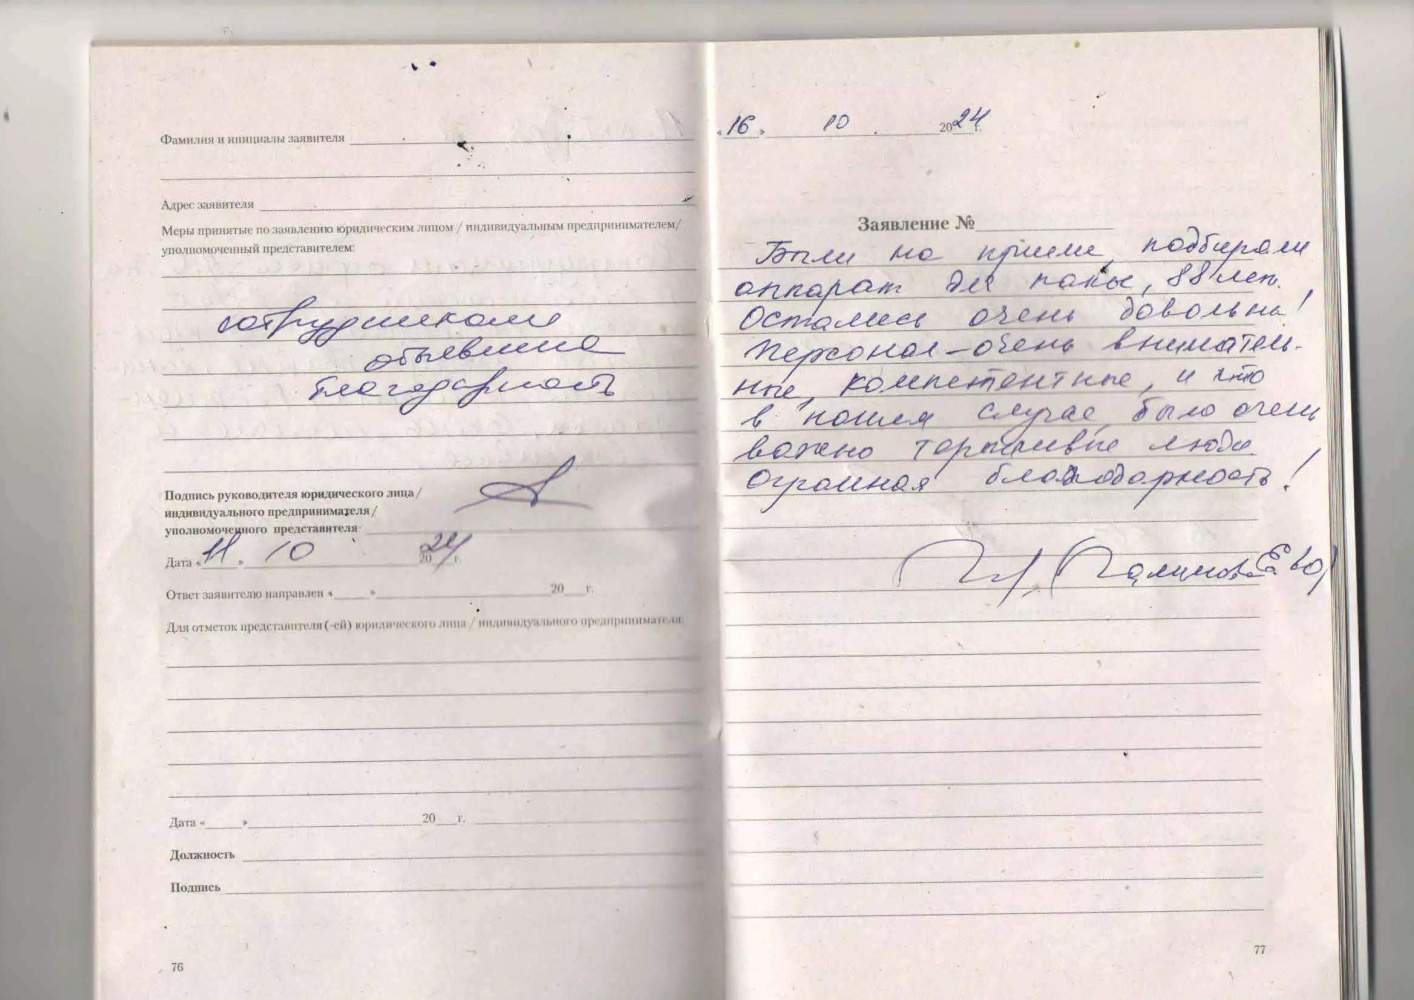 Фамилия и инициалы заявителя
Адрес заявителя
Меры принятые по заявлению юридическим лицом / индивидуальным предпринимателем/
уполномоченный представителем:
сотрудникам
объявлена
благодарность
Подпись руководителя юридического лица/
индивидуального предпринимателя/
уполномоченного представителя
Дата «11» 10 2024 г.
Ответ заявителю направлен «____» 20__г.
Для отметок представителя (-ей) юридического лица / индивидуального предпринимателя
Дата «____» 20__г.
Должность
Подпись
76
«16» 10 2024 г.
Заявление №
Были на приеме, подбирали
аппарат для папы, 88 лет.
Остались очень довольны!
Персонал – очень вниматель-
ные, компетентные, и что
в нашем случае было очень
важно терпеливые люди.
Огромная благодарность!
77